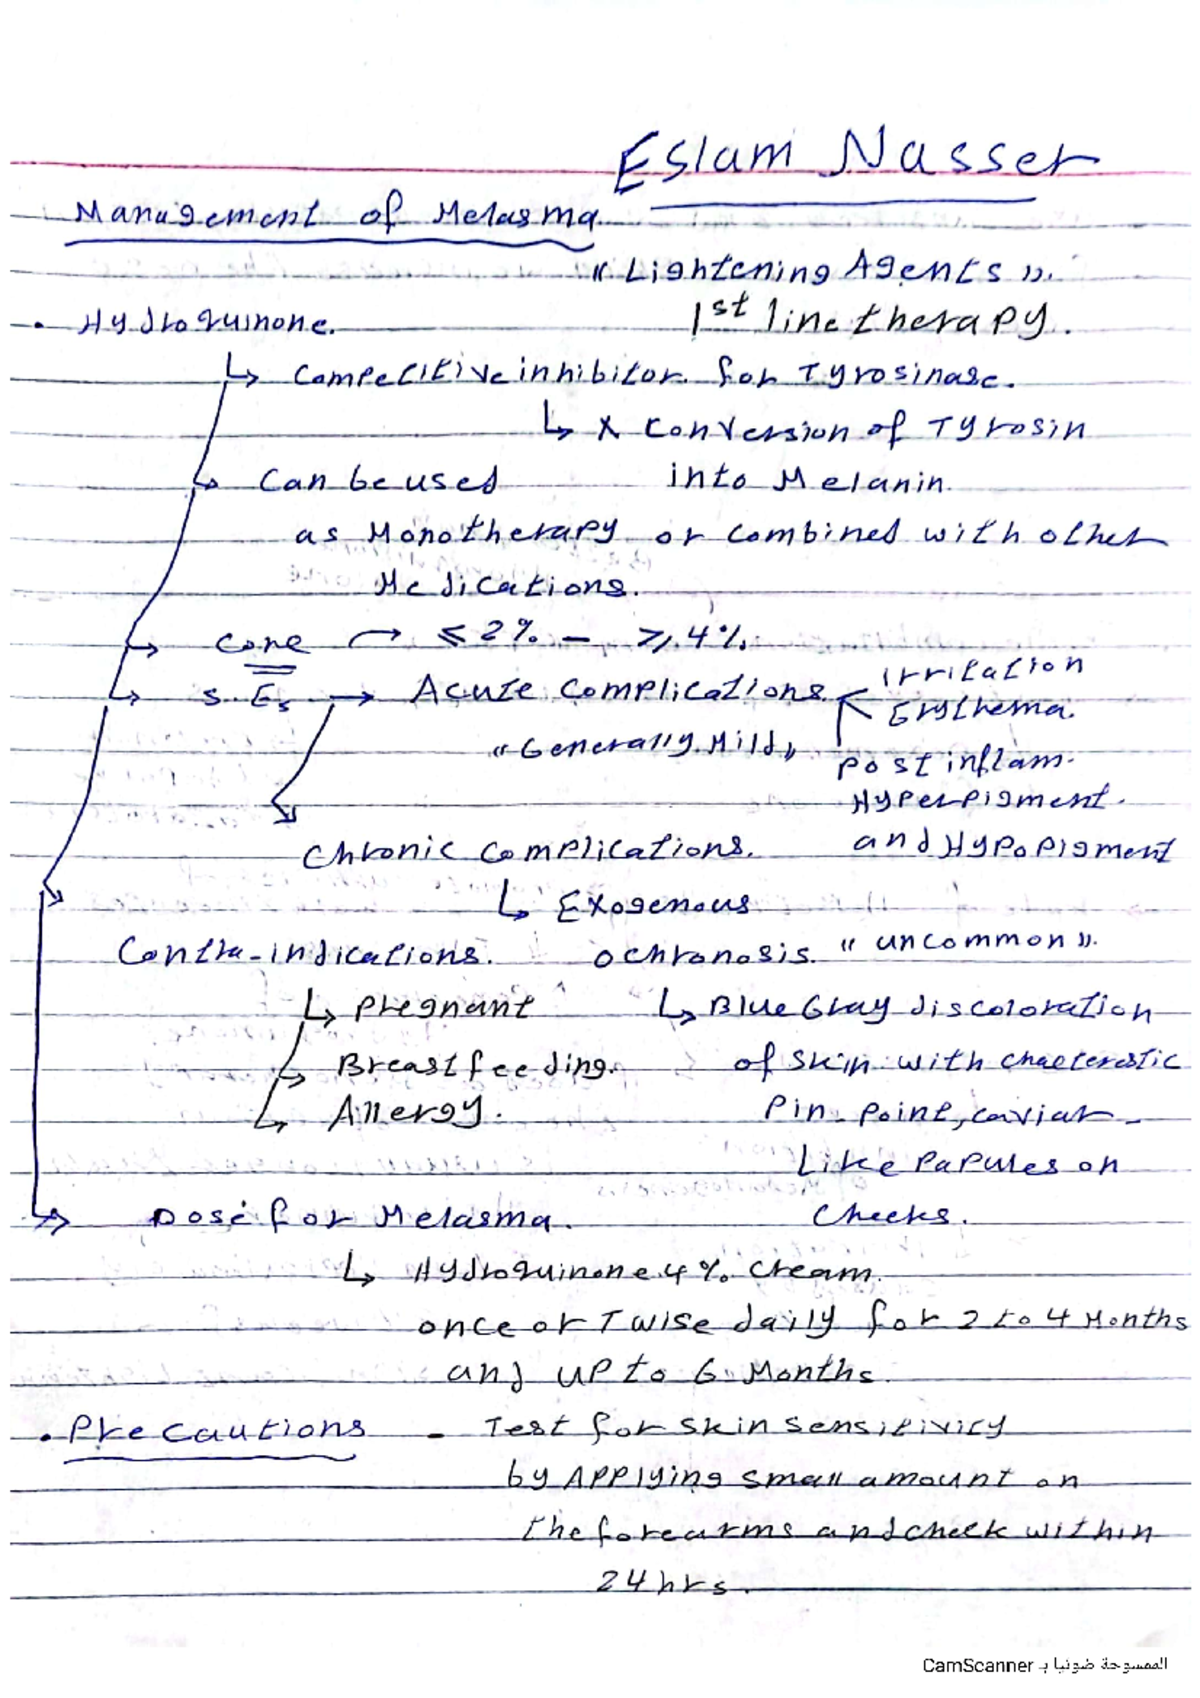 Eslam Nasser
Management of Melasma
« Lightening Agents ».
• Hydroquinone. 1st line therapy.
↳ Competitive inhibitor for Tyrosinase.
↳ X conversion of Tyrosin
↳ Can be used into Melanin.
as Monotherapy or combined with other
Medications.
↳ Conc → ≤ 2% - ≥ 4%.
↳ S.Es → Acute complications Irritation
Erythema.
« Generally Mild » post inflam.
Hyperpigment.
Chronic complications. and Hypopigment
↳ Exogenous
Contra-indications. ochronosis. « uncommon ».
↳ Pregnant ↳ Blue Gray discoloration
Breastfeeding. of skin with chaecterestic
Allergy. Pin-point, caviar-
Like Papules on
→ Dose for Melasma. Cheeks.
↳ Hydroquinone 4% cream.
once or Twise daily for 2 to 4 Months
and up to 6 Months.
• Precautions - Test for skin sensitivity
by Applying small amount on
the forearms and check within
24 hrs.
الممسوحة ضوئيا بـ CamScanner